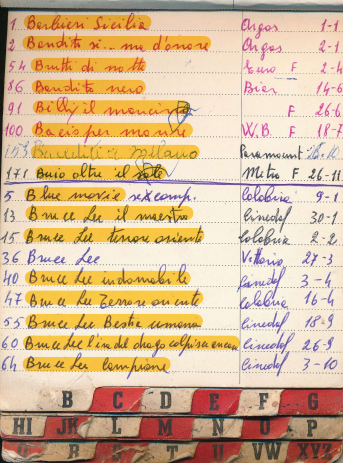 1 Barbieri Sicilia Argos 1-1
2 Bandito si... ma d'onore Argos 2-1
54 Brutti di notte Euro F 2-4
86 Bandito nero Biar 14-6
91 Billy il mancino F 26-6
100 Bacis per morire W.B. F 18-7
153 Banditi a Milano Paramount
171 Buio oltre il sole Metro F 26-11
5 Blue movie sex comp. Colobria 9-1
13 Bruce Lee il maestro Cinedaf 30-1
15 Bruce Lee terrore oriente Colobria 2-2
36 Bruce Lee Vittoria 27-3
40 Bruce Lee indomabile Cinedaf 3-4
47 Bruce Lee Terrore oriente Colobria 16-4
55 Bruce Lee Bestia umana Cinedaf 18-9
60 Bruce Lee l'ira del drago colpisce ancora Cinedaf 26-9
64 Bruce Lee campione Cinedaf 3-10
B C D E F G
HI JK L M N O P
R S T U VW XYZ